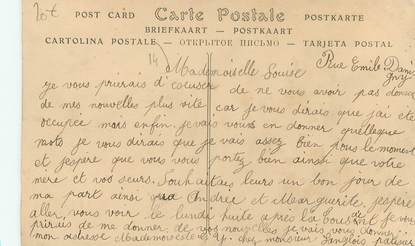 POST CARD Carte Postale POSTKARTE
BRIEFKAART — POSTKAART
CARTOLINA POSTALE — ОТКРЫТОЕ ПИСЬМО — TARJETA POSTAL
14
Mademoiselle Louise Rue Emile
je vous prirais d'excuser de ne vous avoir pas donner
de mes nouvelles plus vite car je vous dirais que j'ai été
occupée mais enfin je vais vous en donner quelleque
mots je vous dirais que je vais assez bien pous le moment
et j'espère que vous vous portez bien ainsi que votre
mère et vos seurs. Souhaitais leurs un bon jour de
ma part ainsi qua Andrea et Marguerite, j'espère
aller vous voir le lundi huile après la
prirais de me donner de vos nouvelles je vais vous donner
mon adresse Mademoiselle chez monsieur Langlois